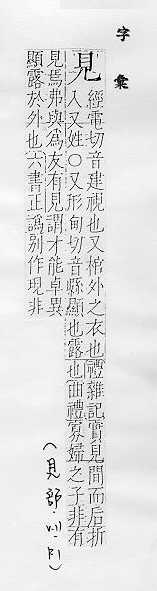 字彙
見
經電切音建視也又棺外之衣也禮雜記實見間而后折
入又姓○又形甸切音縣顯也露也曲禮寡婦之子非有
見焉弗與為友有見謂才能卓異
顯露於外也六書正譌別作現非
(見部